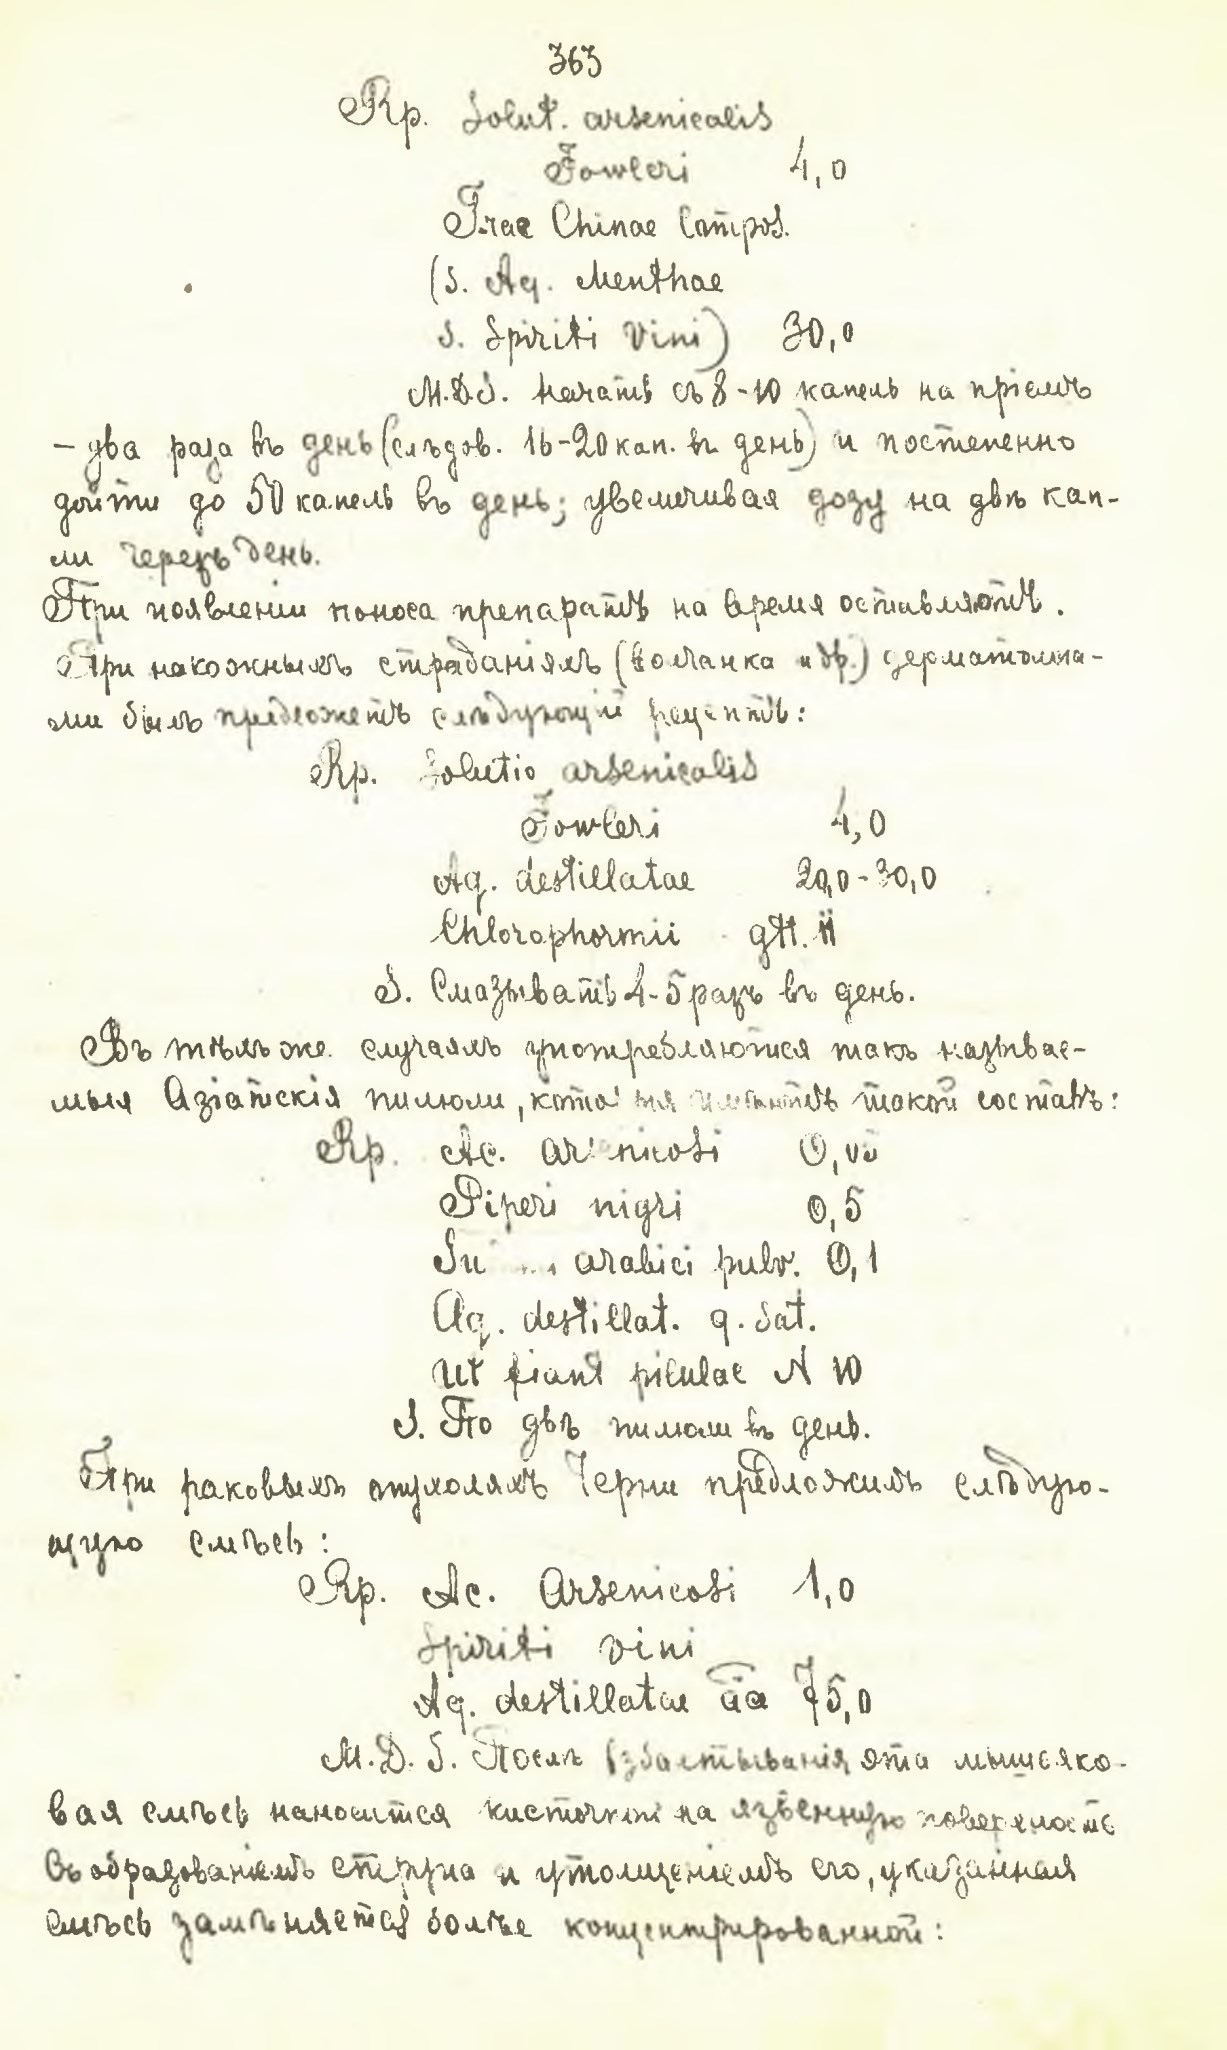 363
Rp. Solut. arsenicalis
Fowleri 4,0
T-rae Chinae Compos.
(S. Aq. Menthae
S. Spiriti Vini) 30,0
M.D.S. Начать съ 8-10 капель на прiемъ
- два раза въ день (слѣдов. 16-20 кап. въ день) и постепенно
дойти до 50 капель въ день; увеличивая дозу на двѣ кап-
ли черезъ день.
При появленiи поноса препаратъ на время оставляютъ.
При накожныхъ страданiяхъ (волчанка и др.) дерматолога-
ми былъ предложенъ слѣдующiй рецептъ:
Rp. Solutio arsenicalis
Fowleri 4,0
Aq. destillatae 20,0-30,0
Chlorophormii gtt. ii
S. Смазывать 4-5 разъ въ день.
Въ тѣхъ же случаяхъ употребляются такъ называе-
мыя Азiатскiя пилюли, имѣютъ такой составъ:
Rp. Ac.
Piperi nigri 0,5
arabici pulv. 0,1
Aq. destillat. q. sat.
Ut fiant pilulae N 10
S. По двѣ пилюли въ день.
При раковыхъ опухоляхъ Черни предложилъ слѣдую-
щую смѣсь:
Rp. Ac. Arsenicosi 1,0
Spiriti vini
Aq. destillatae āā 75,0
M.D.S. Послѣ взбалтыванiя эта мышьяко-
вая смѣсь наносится кисточкой на язвенную поверхность
Съ образованiемъ струпа и утолщенiемъ его, указанная
смѣсь замѣняется болѣе концентрированной: